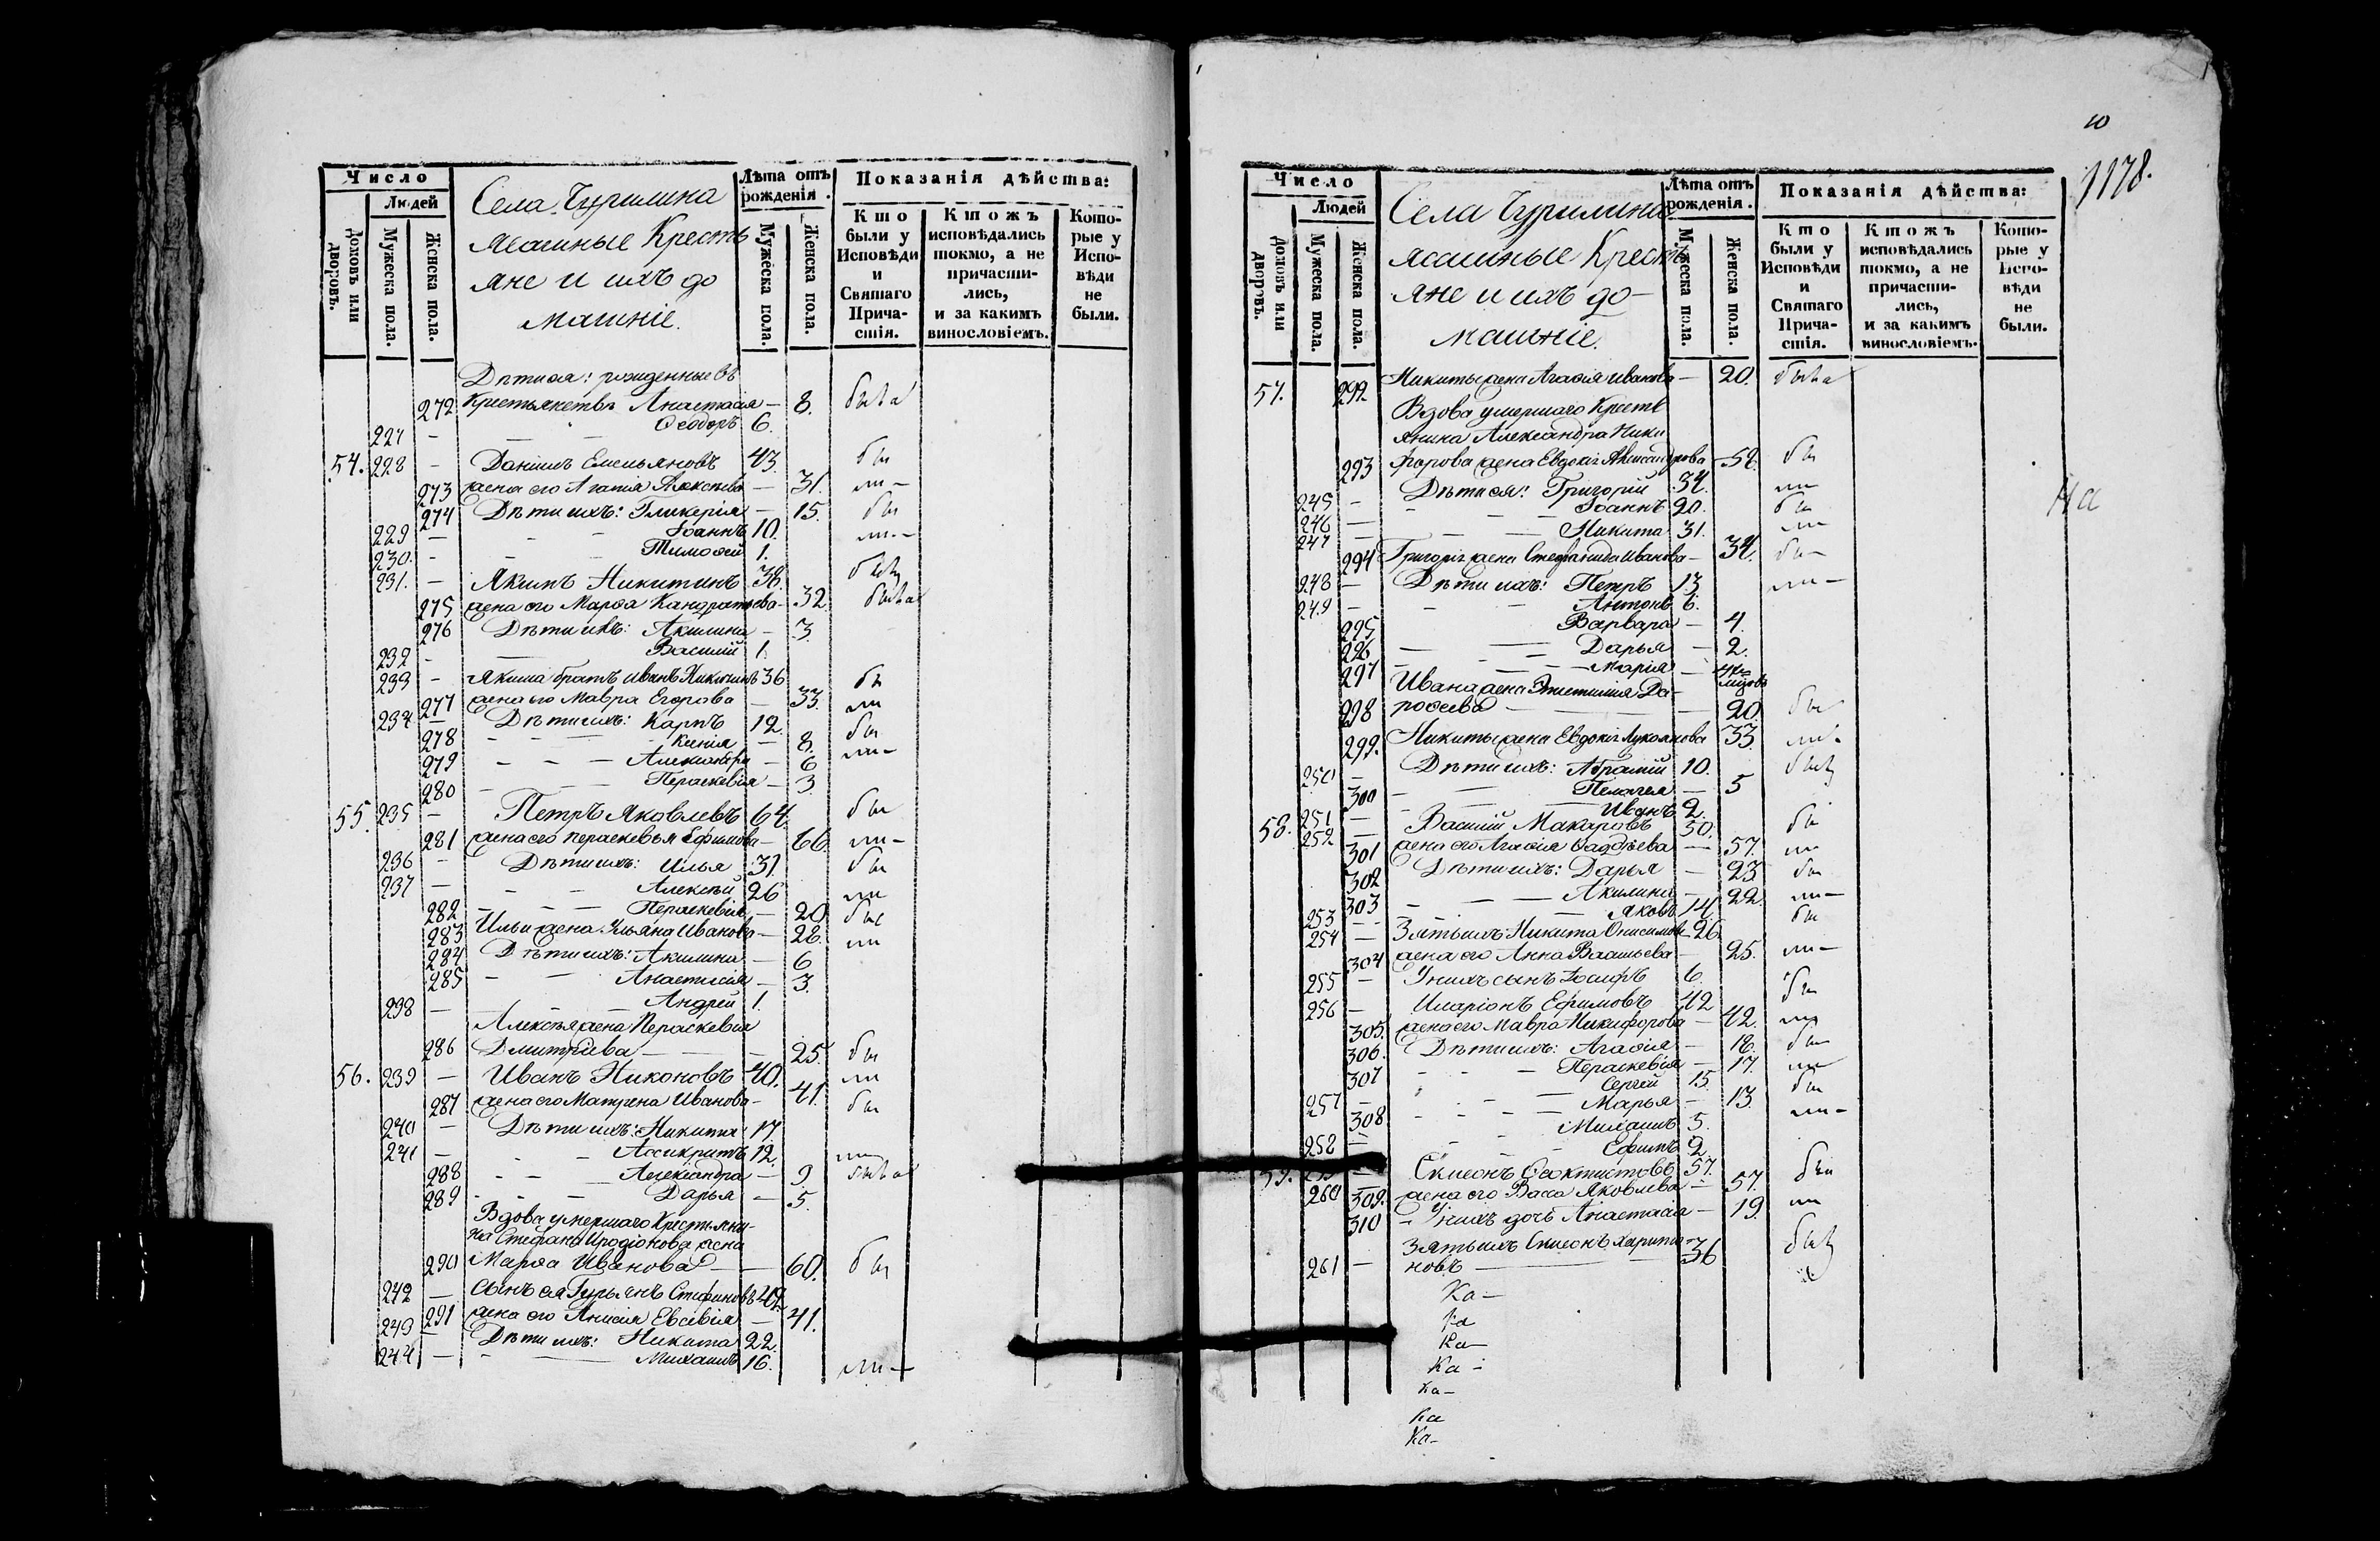 Число
Людей
домовъ или дворовъ.
Мужеска пола.
Женска пола.
Села Чурилина
ясашные Кресть
яне и ихъ до
машніе.
Лѣта отъ рожденія.
Мужеска пола.
Женска пола.
Показанія дѣйства:
Кто были у Исповѣди и Святаго Причастія.
Ктожъ исповѣдались токмо, а не причастились, и за какимъ винословіемъ.
Которые у Исповѣди не были.
Дѣти ея: рожденные въ
272 Крестьянствѣ Анастасія — 8. была
227 — Ѳеодоръ 6.
54. 228 — Даніилъ Емельяновъ 43. бы
273 жена его Агапія Алексѣева — 31. ли —
274 Дѣти ихъ: Гликерія — 15. бы
229 — Іоаннъ 10. ли —
230. — Тимофей 1.
231. — Якимъ Никитинъ 38.
275 жена его Марфа Кандратьева — 32. была
276 Дѣти ихъ: Акилина — 3
232 — Василій 1.
233 — Якима братъ Иванъ Никитинъ 36 бы
277 жена его Мавра Егорова — 33. ли
234 — Дѣти ихъ: Карпъ 12. бы
278 — Ксенія — 8. ли —
279 — Александра — 6
280 — Пераскевія — 3
55. 235 — Петръ Яковлевъ 64 бы
281 жена его Пераскевья Ефимова — 66. ли —
236 — Дѣти ихъ: Илья 31. бы
237 — Алексѣй 26 ли
282 — Пераскевія — 20 бы
283 Ильи жена Ульяна Иванова — 28. ли
284 Дѣти ихъ: Акилина — 6
285 — Анастасія — 3.
238 — Андрей 1.
Алексѣя жена Пераскевія
286 Дмитріева — 25. бы
56. 239 — Иванъ Никоновъ 40. ли
287 жена его Матрена Иванова — 41. бы
240 — Дѣти ихъ: Никита 17.
241 — Ассикритъ 12. ли
288 — Александра — 9 была
289 — Дарья — 5.
Вдова умершаго Крестьяни-
на Стефана Иродіонова жена
290 Марфа Иванова — 60. бы
242 — Сынъ ея Гурьянъ Стефановъ
291 жена его Анисія Евсѣвія — 41.
243 — Дѣти ихъ: Никита 22.
244 — Михаилъ 16. ли —
10
1178.
Число
Людей
домовъ или дворовъ.
Мужеска пола.
Женска пола.
Села Чурилина
ясашные Кресть
яне и ихъ до-
машніе.
Лѣта отъ рожденія.
Мужеска пола.
Женска пола.
Показанія дѣйства:
Кто были у Исповѣди и Святаго Причастія.
Ктожъ исповѣдались токмо, а не причастились, и за какимъ винословіемъ.
Которые у Исповѣди не были.
57. 292 Никиты жена Агафія Иванова — 20. была
Вдова умершаго Кресть
янина Александра Ники
293 форова жена Евдокія Александрова — бы
245 — Дѣти ея: Григорій 34. ли
246 — Іоаннъ 20. бы
247 — Никита 31. ли
294 Григорія жена Стефанида Иванова — 34. бы —
248 — Дѣти ихъ: Петръ 13 ли —
249 — Антонъ 6.
295 — Варвара — 4.
226 — Дарья — 2.
297 — Марія —
Ивана жена Епистимія До-
298 рофѣева — 20. бы
299. Никиты жена Евдокія Лукоянова 33. ли —
250 — Дѣти ихъ: Абрамій 10.
300 — Пелагея — 5
251 — Иванъ 2.
58. 252 — Василій Макаровъ 50. бы
301 жена его Агафія Фаддѣева — 57. ли
302 Дѣти ихъ: Дарья — 23 бы
303 — Акилина — 22. ли —
253 — Яковъ 14. бы
254 — Зять ихъ Никита Онисимовъ 26.
304 жена его Анна Васильева — 25. ли —
255 — У нихъ сынъ Іосифъ 6.
256 — Иларіонъ Ефимовъ 42 бы
305. жена его Мавра Никифорова — 42. ли
306. Дѣти ихъ: Агафія — 18. бы
307 — Пераскевія — 17. ли
257 — Сергѣй 15. бы
308 — Марья — 13. ли —
258 — Михаилъ 5.
— Ефимъ 2.
59. Симеонъ Феоктистовъ 57. бы
260 309. жена его Васса Яковлева — 57. ли
310 — У нихъ дочь Анастасія — 19.
Зять ихъ Симеонъ Харито-
261 — новъ — 36
На
Ка —
Ка
Ка —
Ка —
Ка —
Ка
Ка —